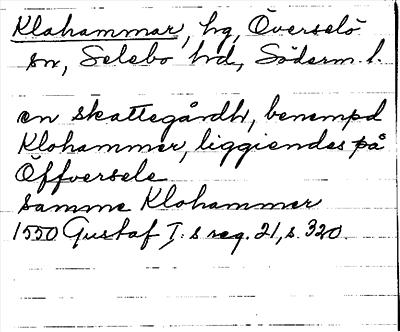 Klahammar, hg, Överselö
sn, Selebo hd, Söderm. l.
en skattegårdh, benempd
Klohammer, liggiendes på
Öffversele
samme Klohammer
1550 Gustaf I:s reg. 21, s. 320.